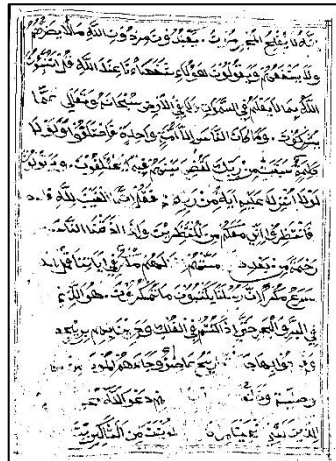 انه لا يفلح المجرمون ويعبدون من دون الله ما لا يضرهم
ولا ينفعهم ويقولون هؤلاء شفعاؤنا عند الله قل اتنبئون
الله بما لا يعلم في السموات ولا في الارض سبحانه وتعالى عما
يشركون وما كان الناس الا امة واحدة فاختلفوا ولولا
كلمة سبقت من ربك لقضي بينهم فيه يختلفون ويقولون
لولا انزل عليه اية من ربه فقل انما الغيب لله
فانتظروا اني معكم من المنتظرين واذا اذقنا الناس
رحمة من بعد مستهم لهم مكر في اياتنا قل الله
اسرع مكرا ان رسلنا يكتبون ما تمكرون هو الذي
في البر والبحر حتى اذا كنتم في الفلك وجرين بهم بريح
بها ريح عاصف وجاءهم الموج
دعوا الله
من الشاكرين